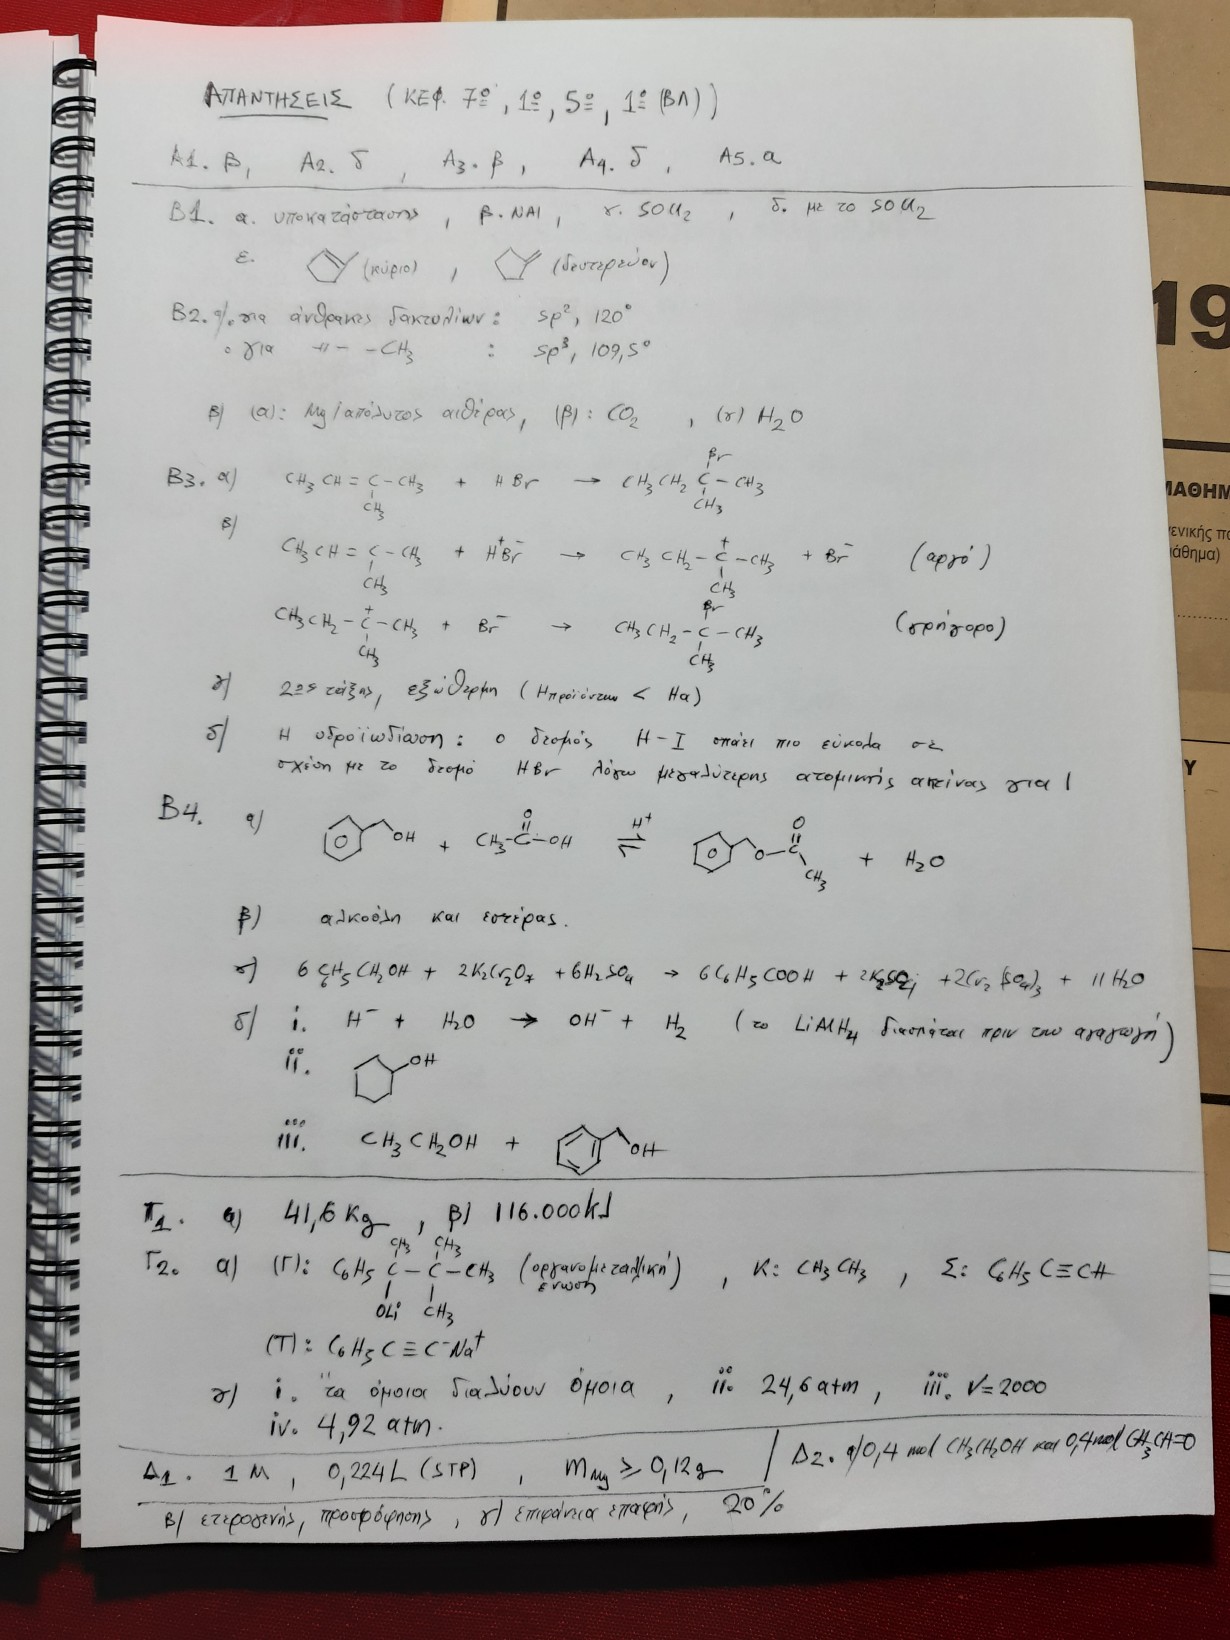 ΑΠΑΝΤΗΣΕΙΣ (ΚΕΦ. 7ο, 1ο, 5ο, 1ο (ΒΛ))
Α1. β, Α2. δ, Α3. β, Α4. δ, Α5. α
Β1. α. υποκατάστασης, β. ΝΑΙ, γ. SOCl2, δ. με το SOCl2
ε. (κύριο), (δευτερεύον)
Β2. α/. για άνθρακες δακτυλίων: sp², 120°
• για -〃- -CH3 : sp³, 109,5°
β) (α): Mg/απόλυτος αιθέρας, (β): CO2, (γ) H2O
Br
Β3. α) CH3CH=C-CH3 + HBr → CH3CH2C-CH3
CH3 CH3
β)
CH3CH=C-CH3 + H⁺Br⁻ → CH3CH2-C⁺-CH3 + Br⁻ (αργό)
CH3 CH3
Br
CH3CH2-C⁺-CH3 + Br⁻ → CH3CH2-C-CH3 (γρήγορο)
CH3 CH3
γ) 2ης τάξης, εξώθερμη (Ηπροϊόντων < Ηα)
δ) Η υδροϊωδίωση: ο δεσμός H-I σπάει πιο εύκολα σε
σχέση με το δεσμό HBr λόγω μεγαλύτερης ατομικής ακτίνας για I
Β4. α) OH + CH3-C-OH ⇌ O-C + H2O
O H⁺ O CH3
β) αλκοόλη και εστέρας.
γ) 6C6H5CH2OH + 2K2Cr2O7 + 6H2SO4 → 6C6H5COOH + 2K2SO4 + 2Cr2(SO4)3 + 11H2O
δ) i. H⁻ + H2O → OH⁻ + H2 (το LiAlH4 διασπάται πριν την αναγωγή)
ii. OH
iii. CH3CH2OH + OH
Γ1. α) 41,6 Kg, β) 116.000kJ
CH3 CH3
Γ2. α) (Γ): C6H5 C-C-CH3 (οργανομεταλλική ένωση), Κ: CH3CH3, Σ: C6H5C≡CH
OLi CH3
(Τ): C6H5C≡C⁻Na⁺
γ) i. τα όμοια διαλύουν όμοια, ii. 24,6 atm, iii. ν=2000
iv. 4,92 atm.
Δ1. 1M, 0,224L (STP), mMg ≥ 0,12g
Δ2. α) 0,4 mol CH3CH2OH και 0,4mol CH3CH=O
β) ετερογενής, προσρόφησης, γ) επιφάνεια επαφής, 20%
19
ΜΑΘΗΜ
ενικής πα
μάθημα)
Υ